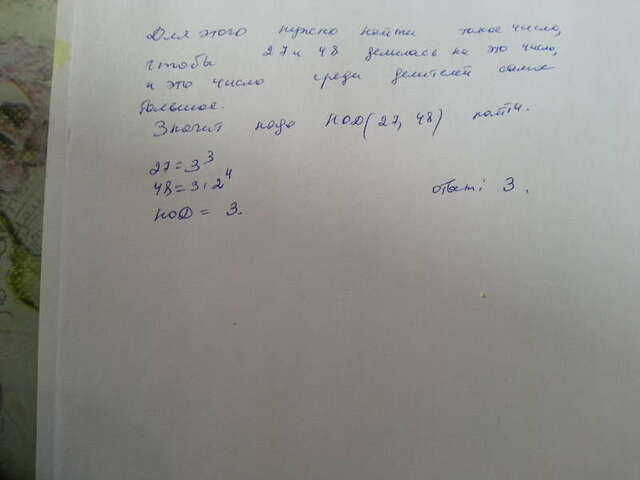 Для этого нужно найти такое число,
чтобы 27 и 48 делилась на это число,
и это число среди делителей самое
большое.
Значит надо НОД(27, 48) найти.
27=3³
48=3·2⁴
НОД = 3.
ответ: 3.